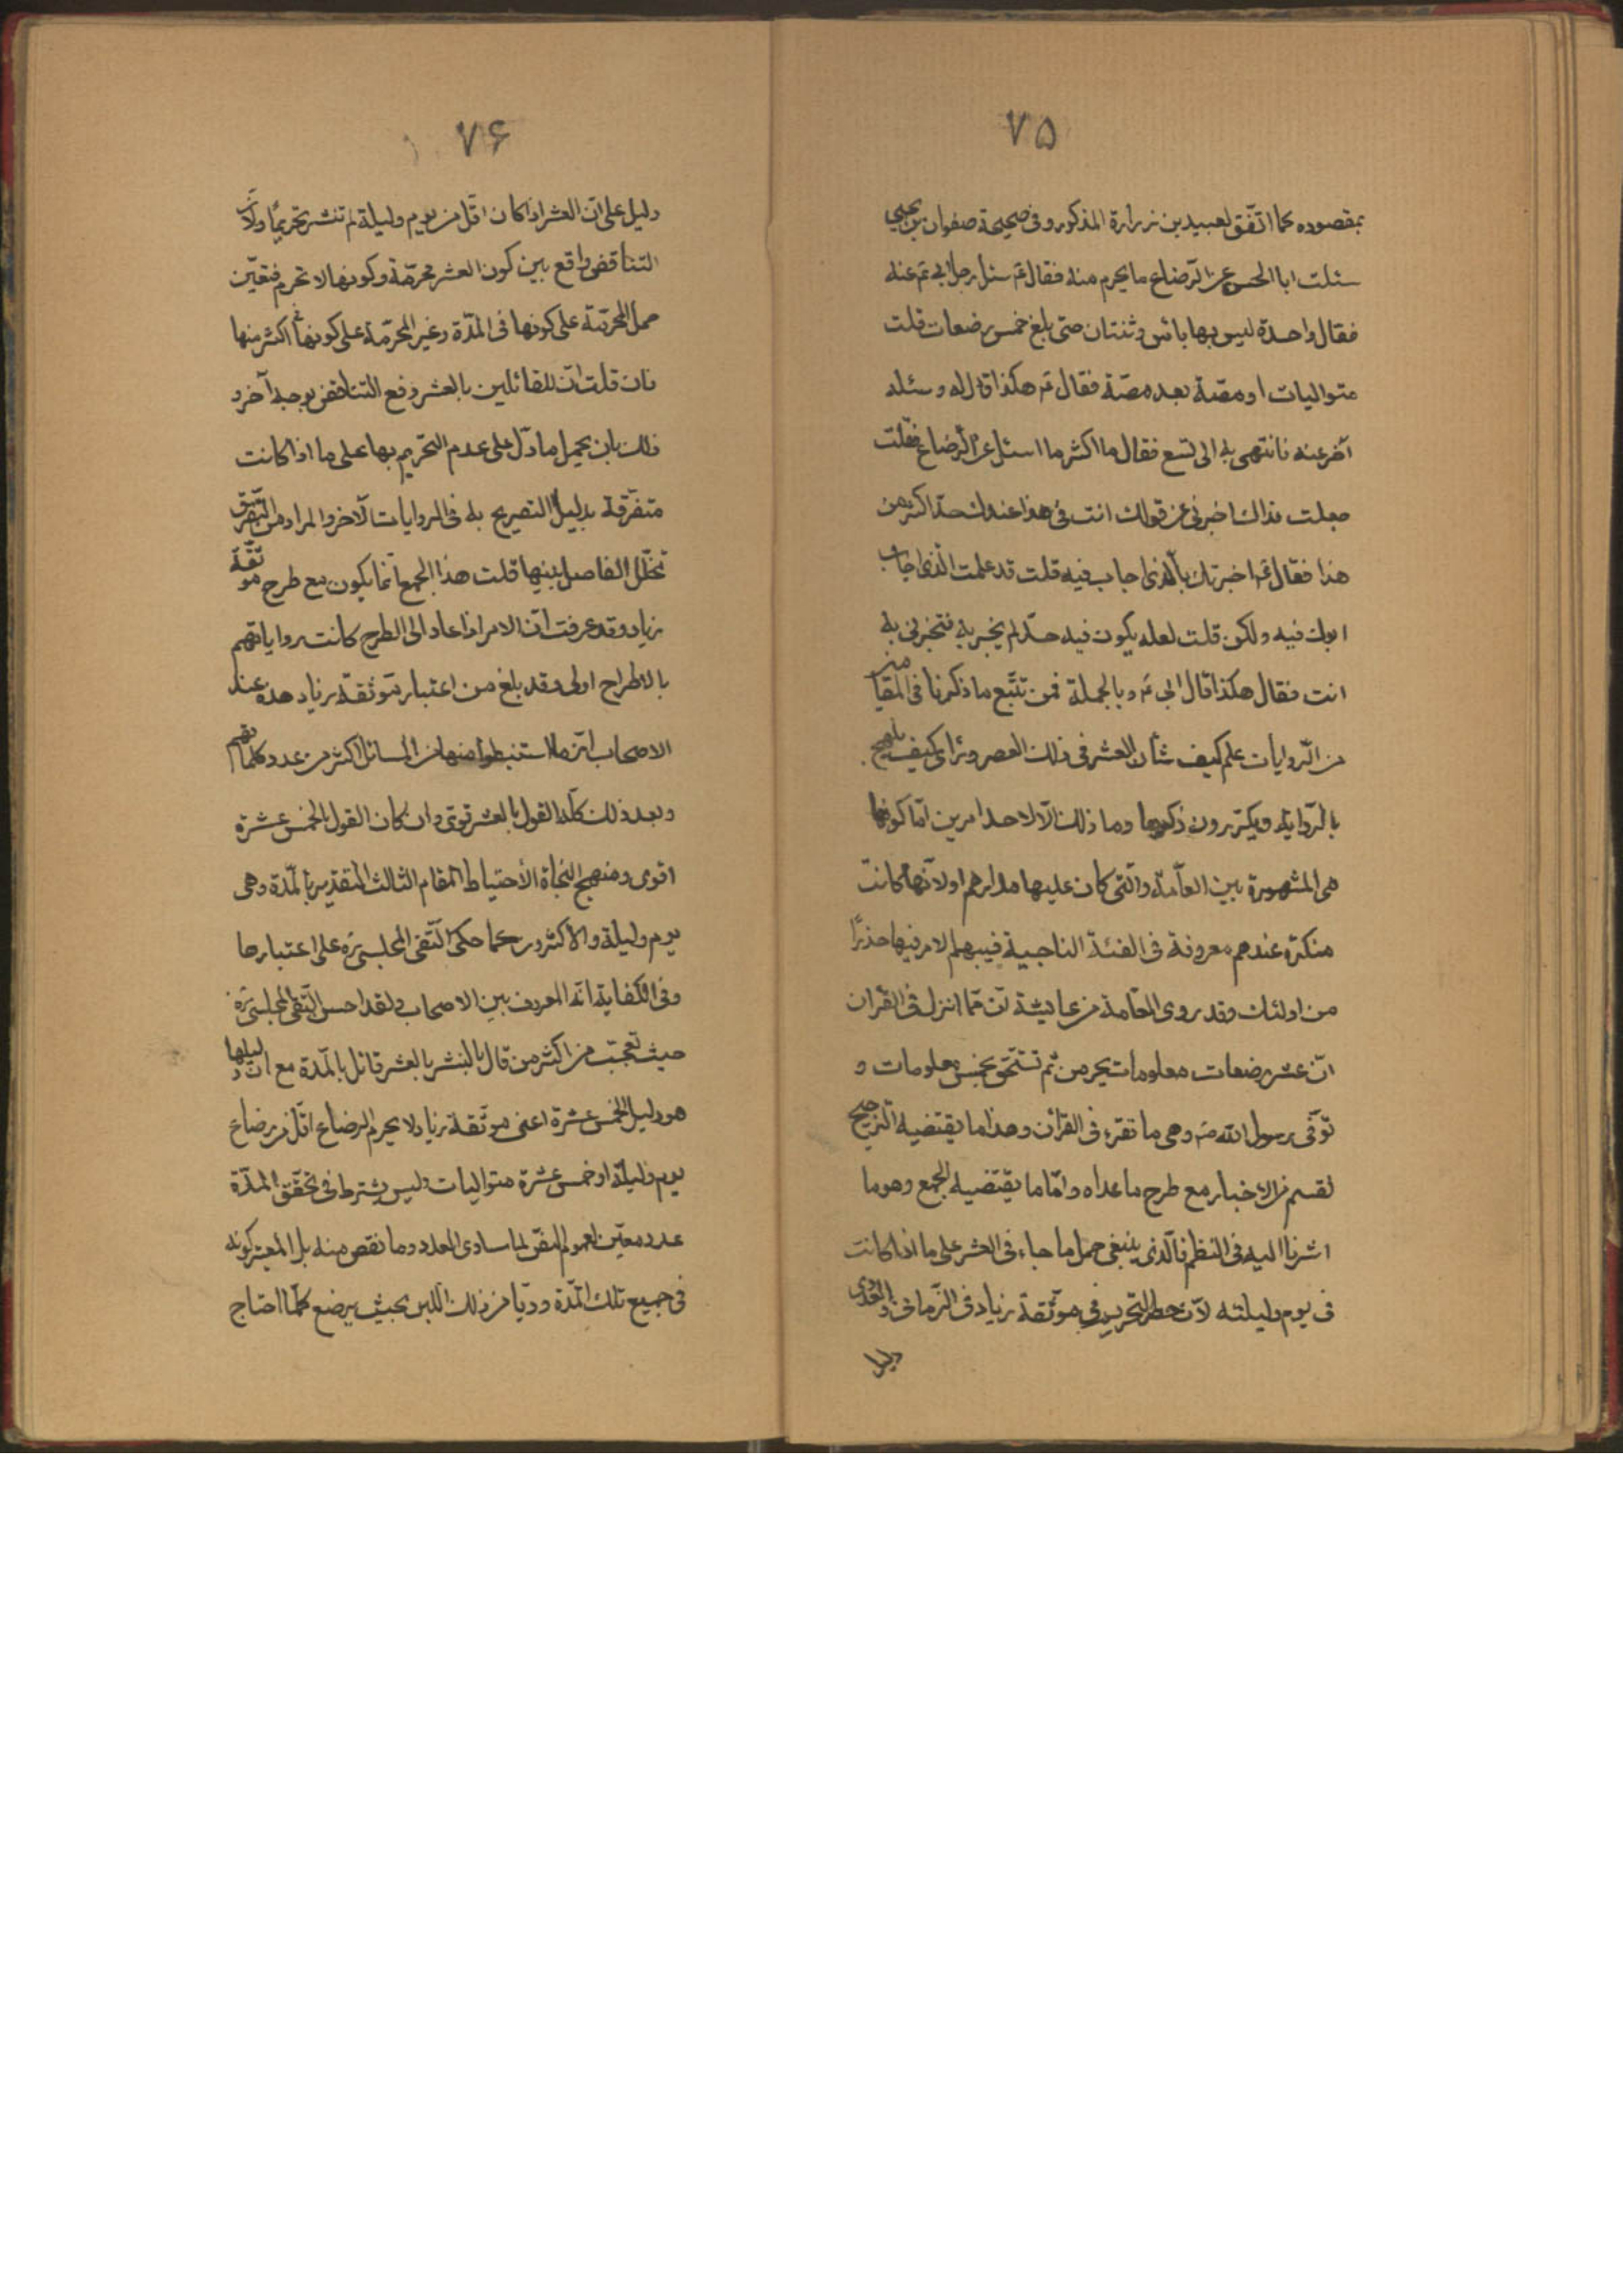 ۷۵
بمقصوده كما اتّفق لعبيد بن زرارة المذكور وفى صحيحة صفوان بن يحيى
سئلت ابا الحسن ع عن الرّضاع ما يحرم منه فقال ع سئل رجل ابى ع عنه
فقال واحدة ليس بها باس وثنتان حتى بلغ خمس رضعات قلت
متواليات او مصّة بعد مصّة فقال ع هكذا قال له وسئله
آخر عنه فانتهى به الى تسع فقال ما اكثر ما اسئل عن الرّضاع فقلت
جعلت فداك اخبرنى عن قولك انت فى هذا عندك حدّ اكثر من
هذا فقال ع اخبرتك بالّذى اجاب فيه قلت قد علمت الّذى اجاب
ابوك فيه ولكن قلت لعله يكون فيه حدّ لم يخبر به فتخبرنى به
انت فقال هكذا قال ابى ع وبالجملة فمن تتبّع ما ذكرنا فى المقامين
من الرّوايات علم كيف شأن العشر فى ذلك العصر وترى كيف يلهج
بالرّواية ويكرّرون ذكرها وما ذلك الّا لاحد امرين امّا كونها
هى المشهورة بين العامّة والّتى كان عليها مدارهم او لانّها كانت
منكرة عندهم معروفة فى الفئة الناجية فيبهم الامر فيها حذرًا
من اولئك وقد روى العامة عن عايشة ان ممّا انزل فى القرآن
انّ عشر رضعات معلومات يحرمن ثم تنسخن بخمس معلومات و
توفّى رسول الله ص وهى ما تقرء فى القرآن وهذا ما يقتضيه الترجيح
لقسم من الاخبار مع طرح ما عداه وامّا ما يقتضيه الجمع وهو ما
اشرنا اليه فى النظم فالّذى ينبغى حمل ما جاء فى العشر على ما اذا كانت
فى يوم وليلته لانّ حصر التحريم فى موثّقة زياد فى الزّمانى والعددى
دليل
۷۶
دليل على انّ العشر اذا كان اقلّ من يوم وليلة لم تنشر تحريمًا ولانّ
التناقض واقع بين كون العشر محرّمة وكونها لا تحرم فتعيّن
حمل المحرّمة على كونها فى المدّة وغير المحرّمة على كونها اكثر منها
فان قلت انّ للقائلين بالعشر دفع التناقض بوجه آخر و
ذلك بان يحمل ما دلّ على عدم التحريم بها على ما اذا كانت
متفرّقة بدليل التصريح به فى الروايات الآخر والمراد من التّفرّق
تخلّل الفاصل بينها قلت هذا الجمع انّما يكون مع طرح موثّقة
زياد وقد عرفت انّ الامر اذا عاد الى الطرح كانت رواياتهم
بالاطراح اولى وقد بلغ من اعتبار موثّقة زياد هذه عند
الاصحاب انّ ما استنبطوا منها من المسائل اكثر من عدد كلماتهم
وبعد ذلك كلّه القول بالعشر قوى وان كان القول بالخمس عشرة
اقوى ومنهج النجاة الأحتياط المقام الثالث التقدير بالمدّة وهى
يوم وليلة والاكثرون كما حكى التّقى المجلسى ره على اعتبارها
وفى الكفاية انّه المعروف بين الاصحاب ولقد احسن التّقى المجلسى ره
حيث تعجّب من اكثر من قال بالنشر بالعشر قائل بالمدّة مع انّ دليلها
هو دليل الخمس عشرة اعنى موثّقة زياد لا يحرم الرضاع اقلّ من رضاع
يوم وليلة او خمس عشرة متواليات وليس يشترط فى تحقّق المدّة
عدد معيّن لعموم النصّ لما ساوى العدد وما نقص منه بل المعتبر كونه
فى جميع تلك المدّة رويّا من ذلك اللّبن بحيث يرضع كلّما احتاج